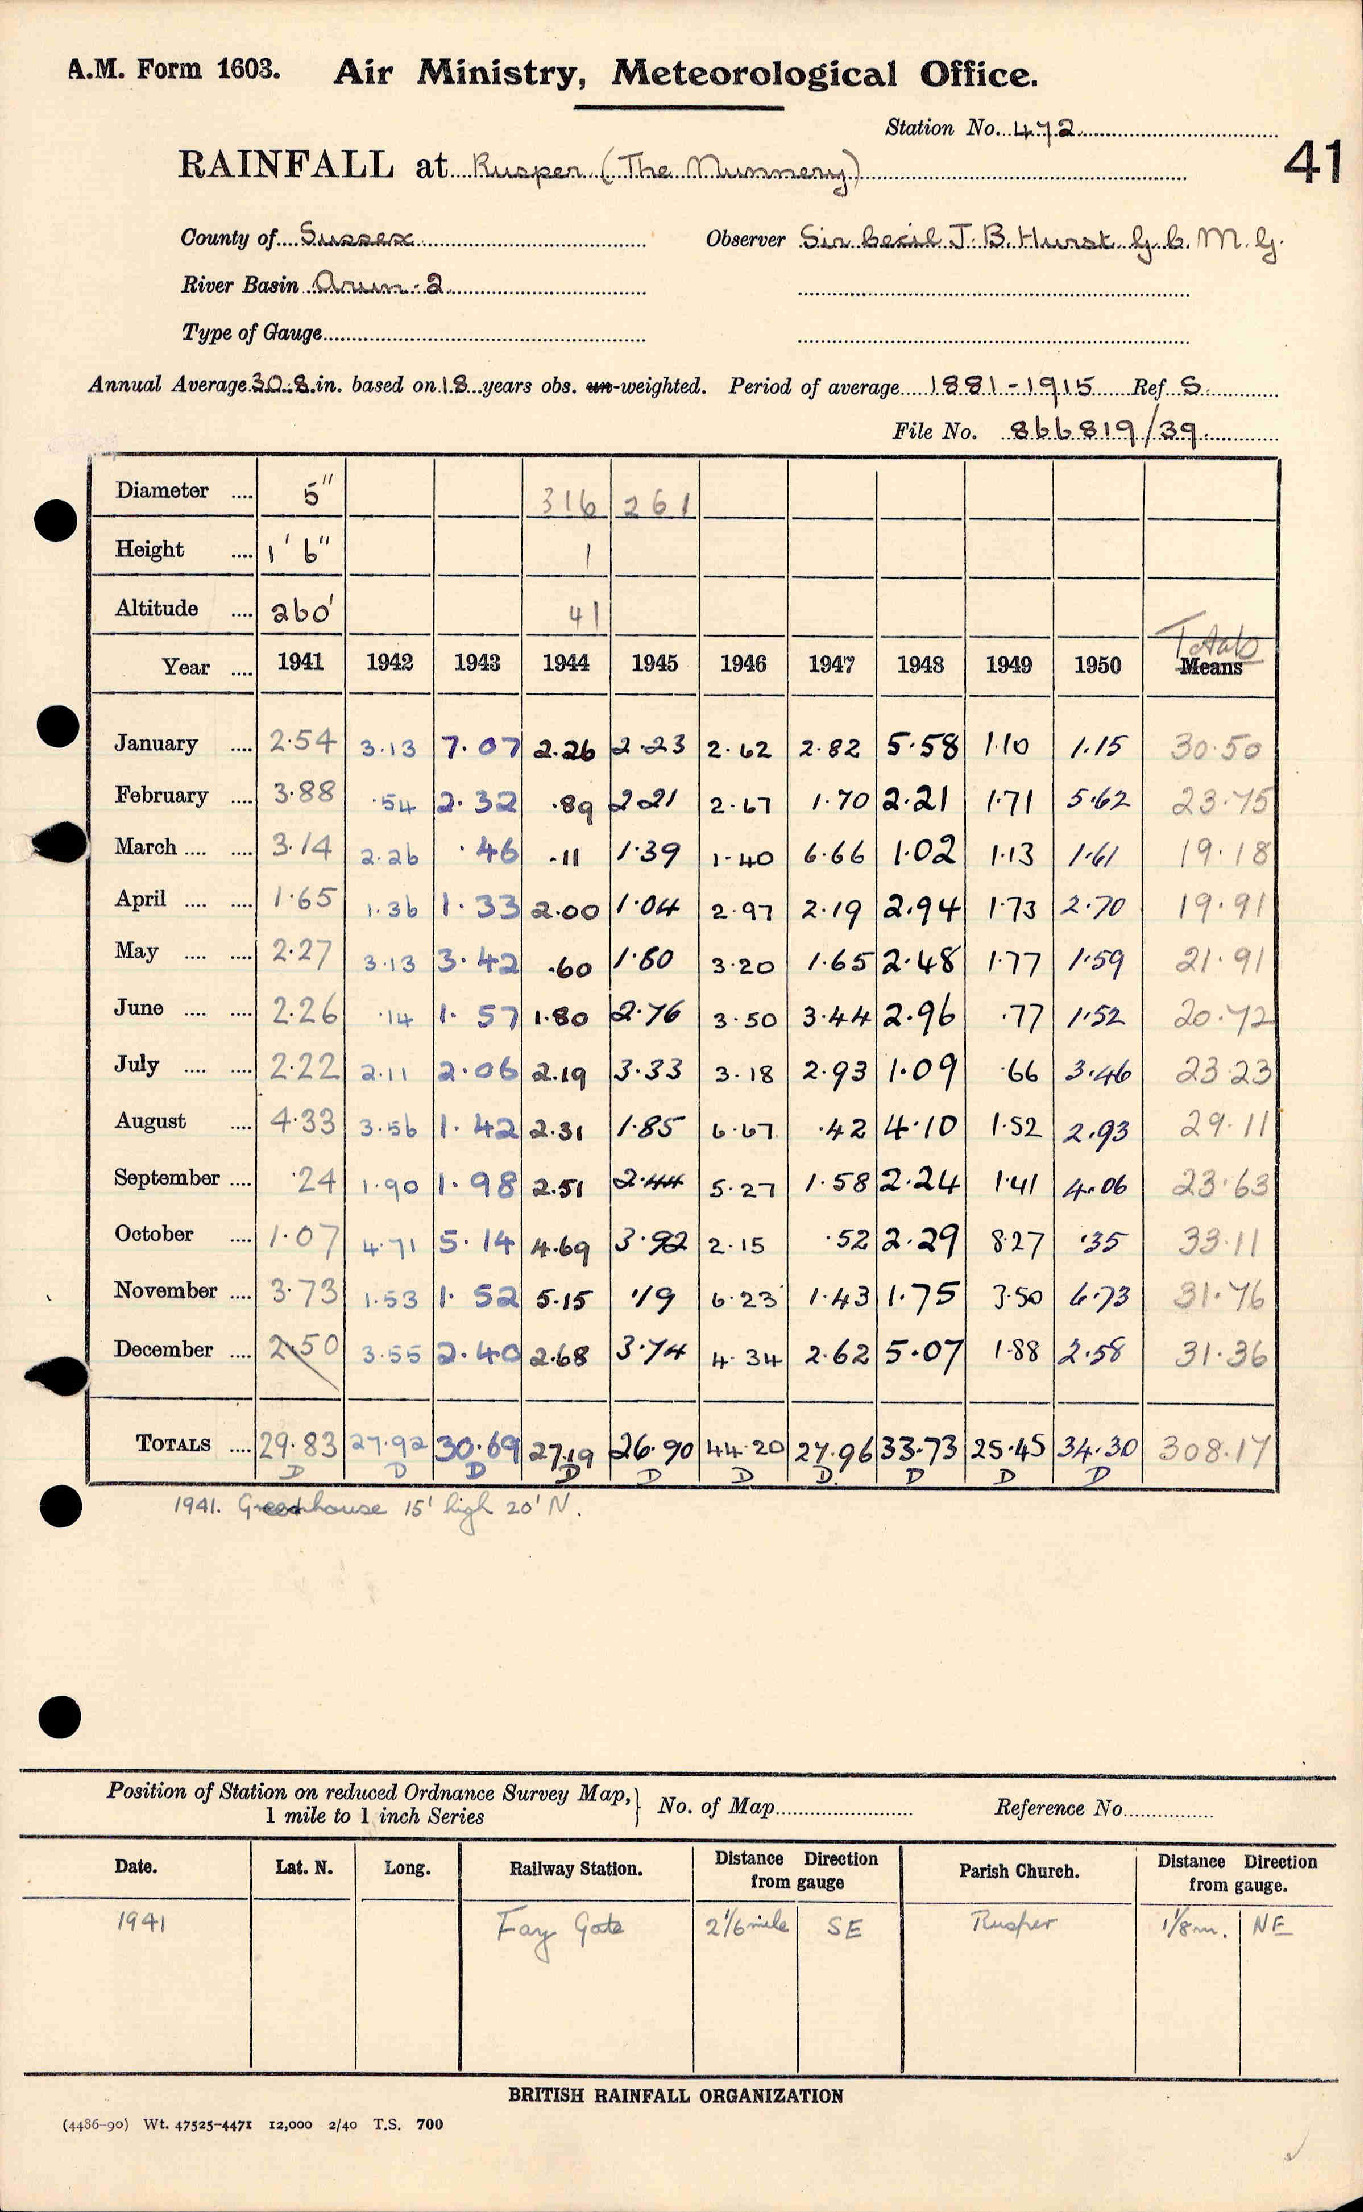 A.M. Form 1603. Air Ministry, Meteorological Office.
Station No. 472
41
RAINFALL at Rusper (The Nunnery)
County of Sussex Observer Sir Cecil J. B. Hurst G.C.M.G.
River Basin Arun-2
Type of Gauge
Annual Average 30.8 in. based on 18 years obs. un-weighted. Period of average 1881-1915 Ref S.
File No. 866819/39
Diameter .... 5" 316 261
Height .... 1' 6" 1
Altitude .... 260' 41
Totals
Year .... 1941 1942 1943 1944 1945 1946 1947 1948 1949 1950 Means
January .... 2.54 3.13 7.07 2.26 2.23 2.62 2.82 5.58 1.10 1.15 30.50
February .... 3.88 .54 2.32 .89 2.21 2.67 1.70 2.21 1.71 5.62 23.75
March .... .... 3.14 2.26 .46 .11 1.39 1.40 6.66 1.02 1.13 1.61 19.18
April .... .... 1.65 1.36 1.33 2.00 1.04 2.97 2.19 2.94 1.73 2.70 19.91
May .... .... 2.27 3.13 3.42 .60 1.80 3.20 1.65 2.48 1.77 1.59 21.91
June .... .... 2.26 .14 1.57 1.80 2.76 3.50 3.44 2.96 .77 1.52 20.72
July .... .... 2.22 2.11 2.06 2.19 3.33 3.18 2.93 1.09 .66 3.46 23.23
August .... 4.33 3.56 1.42 2.31 1.85 6.67 .42 4.10 1.52 2.93 29.11
September .... .24 1.90 1.98 2.51 2.44 5.27 1.58 2.24 1.41 4.06 23.63
October .... 1.07 4.71 5.14 4.69 3.92 2.15 .52 2.29 8.27 .35 33.11
November .... 3.73 1.53 1.52 5.15 .19 6.23 1.43 1.75 3.50 6.73 31.76
December .... 2.50 3.55 2.40 2.68 3.74 4.34 2.62 5.07 1.88 2.58 31.36
TOTALS .... 29.83 27.92 30.69 27.19 26.90 44.20 27.96 33.73 25.45 34.30 308.17
D D D D D D D. D D D
1941. Greenhouse 15' high 20' N.
Position of Station on reduced Ordnance Survey Map, 1 mile to 1 inch Series No. of Map Reference No.
Date. Lat. N. Long. Railway Station. Distance Direction from gauge Parish Church. Distance Direction from gauge.
1941 Fay Gate 2 1/6 mile SE Rusper 1/8 m. NE
BRITISH RAINFALL ORGANIZATION
(4486-90) Wt. 47525-4471 12,000 2/40 T.S. 700